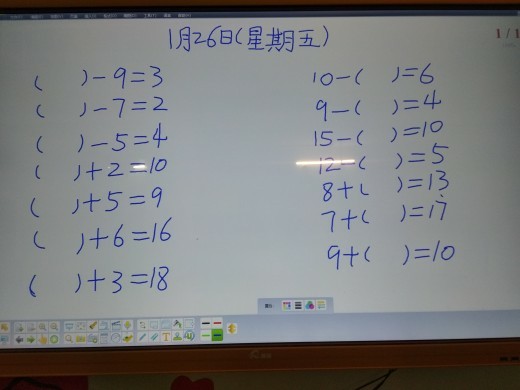 1月26日(星期五)
1/1
( )-9=3
( )-7=2
( )-5=4
( )+2=10
( )+5=9
( )+6=16
( )+3=18
10-( )=6
9-( )=4
15-( )=10
12-( )=5
8+( )=13
7+( )=17
9+( )=10